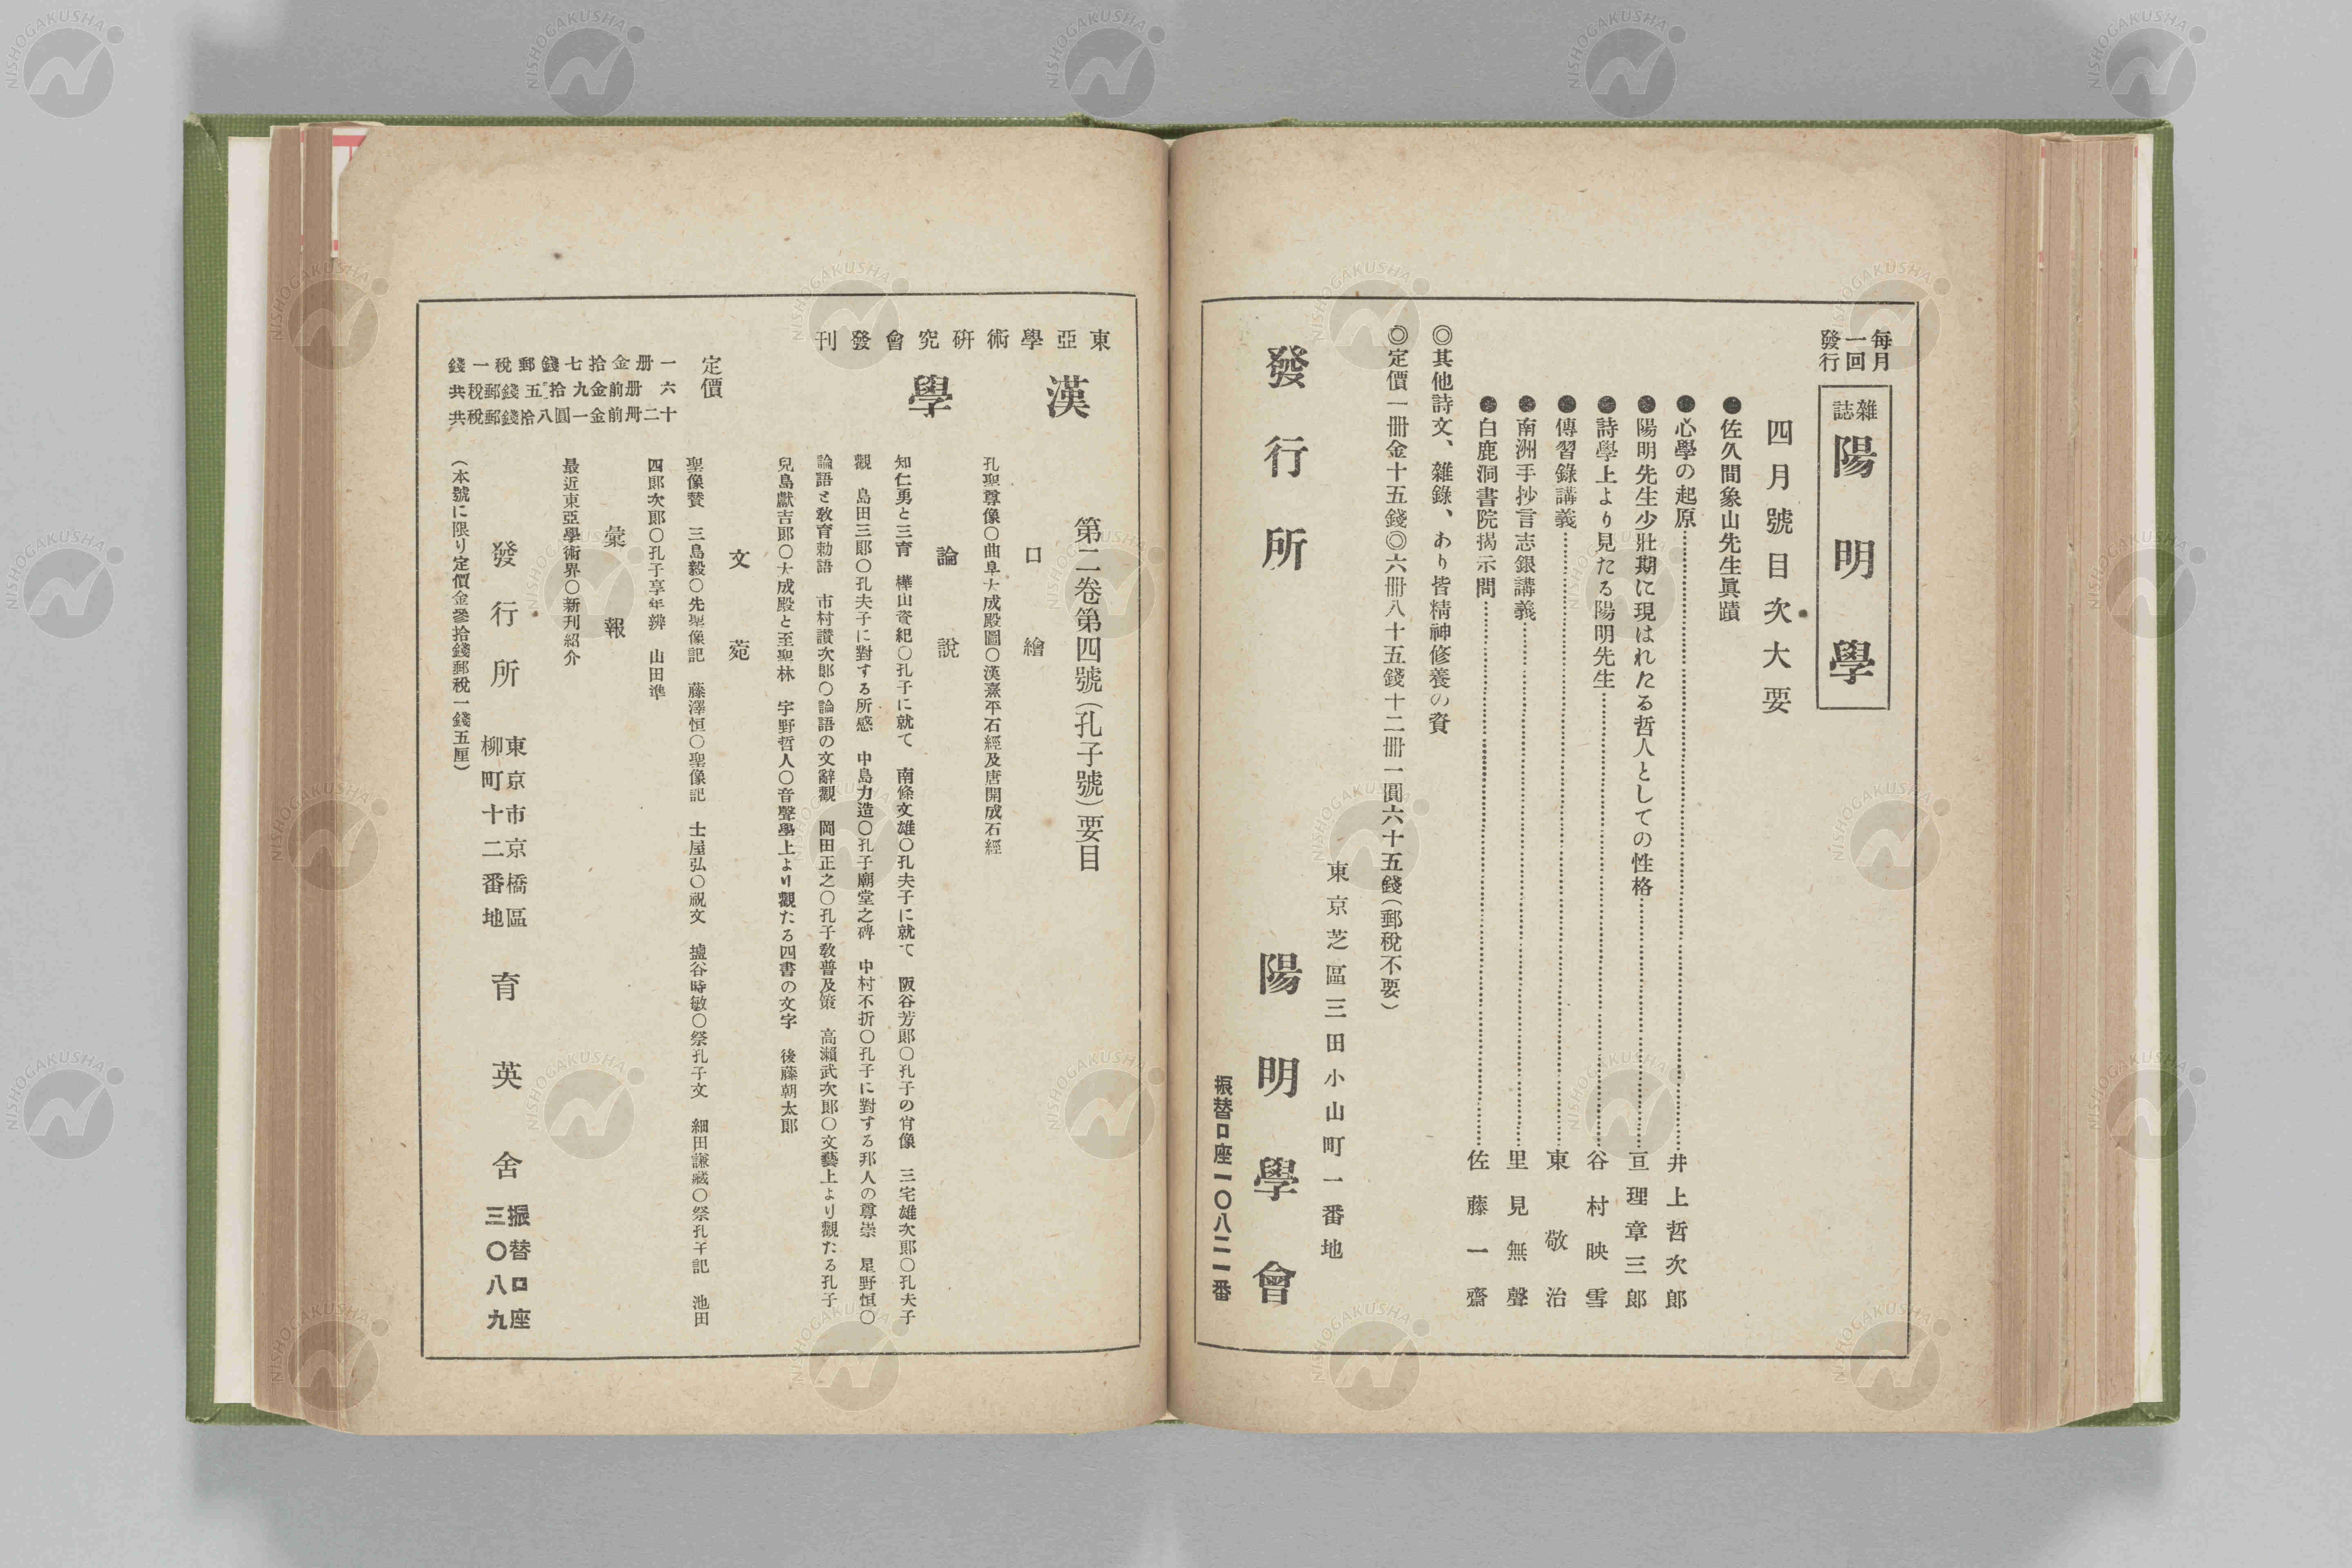 每月一回發行
雜誌 陽明學
四月號目次大要
●佐久間象山先生眞蹟
●心學の起原……井上哲次郎
●陽明先生少壯期に現はれたる哲人としての性格……亘理章三郎
●詩學上より見たる陽明先生……谷村映雪
●傳習錄講義……東敬治
●南洲手抄言志錄講義……里見無聲
●白鹿洞書院揭示問……佐藤一齋
◎其他詩文、雜錄、あり皆精神修養の資
◎定價一冊金十五錢◎六冊八十五錢十二冊一圓六十五錢(郵稅不要)
東京芝區三田小山町一番地
發行所 陽明學會
振替口座一〇八二一番
東亞學術硏究會發刊
漢學
第二卷第四號(孔子號)要目
口繪
孔聖尊像〇曲阜大成殿圖〇漢熹平石經及唐開成石經
論說
知仁勇と三育 樺山資紀〇孔子に就て 南條文雄〇孔夫子に就て 阪谷芳郎〇孔子の肖像 三宅雄次郎〇孔夫子
觀 島田三郎〇孔夫子に對する所感 中島力造〇孔子廟堂之碑 中村不折〇孔子に對する邦人の尊崇 星野恒〇
論語と敎育勅語 市村讚次郎〇論語の文辭觀 岡田正之〇孔子敎普及策 高瀨武次郎〇文藝上より觀たる孔子
兒島獻吉郎〇大成殿と至聖林 宇野哲人〇音聲學上より觀たる四書の文字 後藤朝太郎
文苑
聖像贊 三島毅〇先聖像記 藤澤恒〇聖像記 土屋弘〇祝文 塩谷時敏〇祭孔子文 細田謙藏〇祭孔子記 池田
四郎次郎〇孔子享年辨 山田準
彙報
最近東亞學術界〇新刊紹介
定價
一册金拾七錢郵稅一錢
六册前金九拾五錢郵稅共
十二册前金一圓八拾錢郵稅共
發行所 東京市京橋區柳町十二番地 育英舍 振替口座三〇八九
(本號に限り定價金參拾錢郵稅一錢五厘)